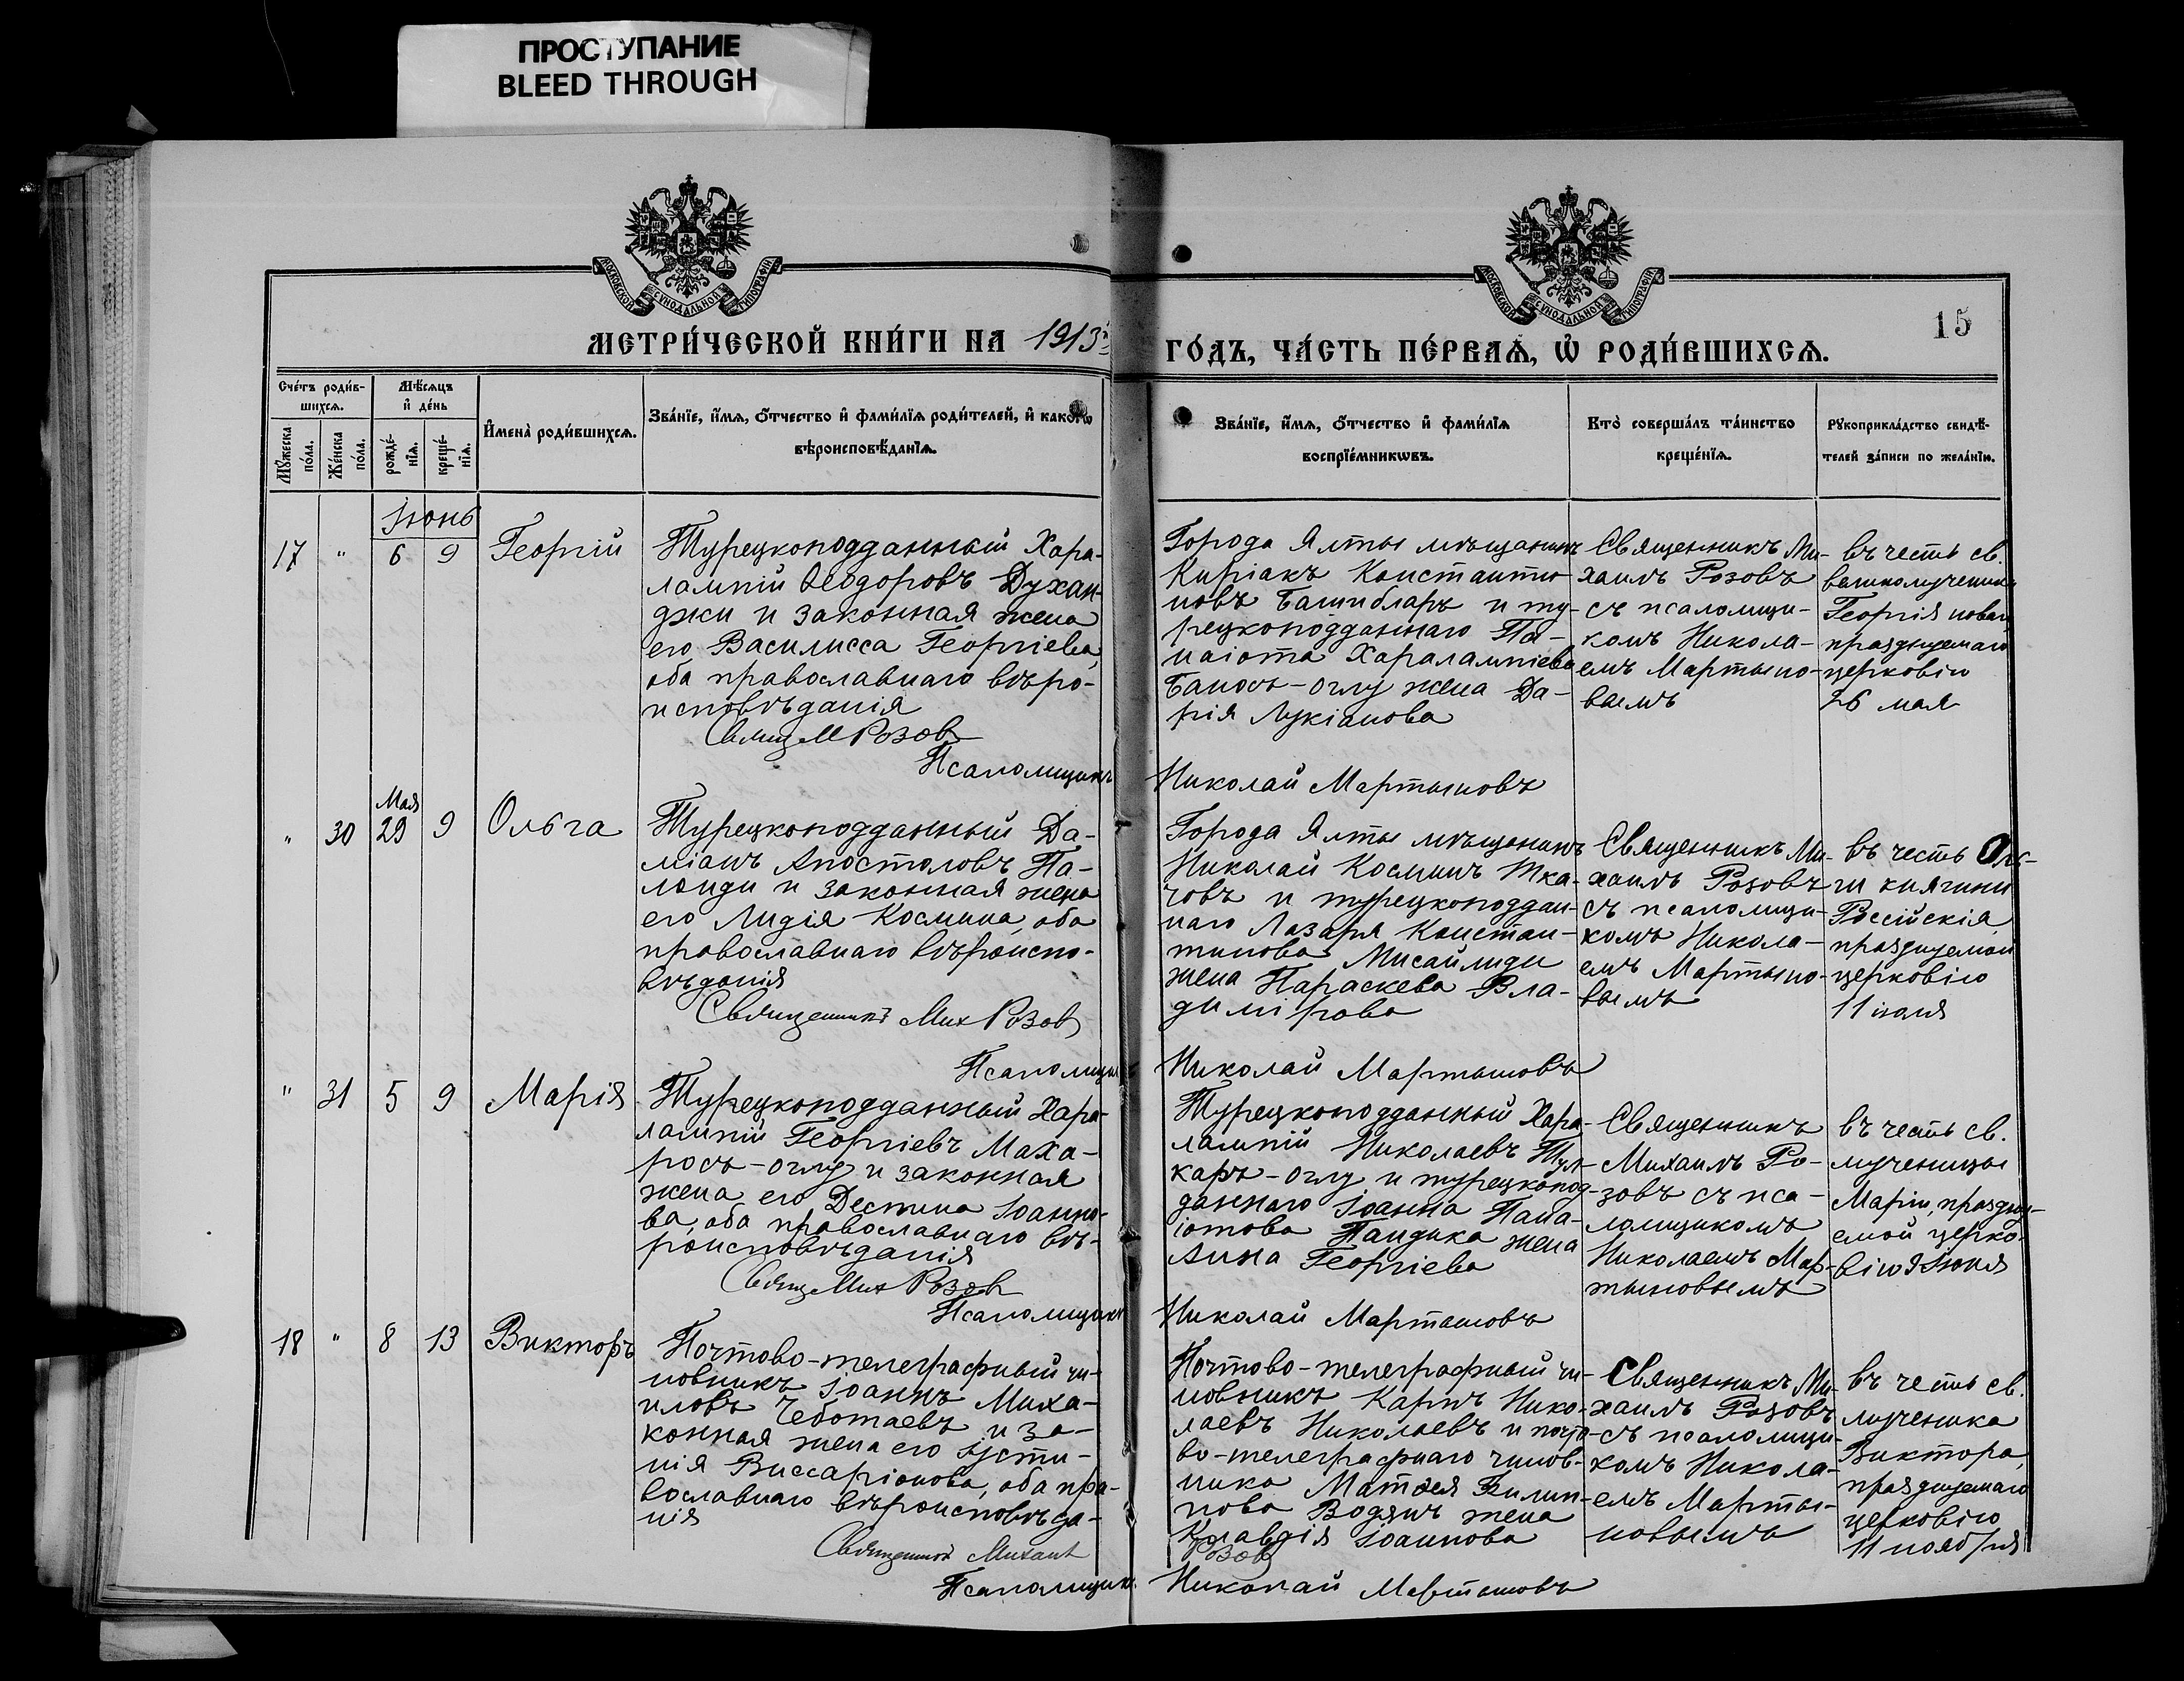 ПРОСТУПАНИЕ
BLEED THROUGH
МОСКОВСКОЙ СѴНОДАЛЬНОЙ ТИПОГРАФІИ
МОСКОВСКОЙ СѴНОДАЛЬНОЙ ТИПОГРАФІИ
15
МЕТРИ́ЧЕСКОЙ КНИ́ГИ НА 1913й
ГО́ДЪ, ЧА́СТЬ ПЕ́РВАѦ, Ѡ҆ РОДИ́ВШИХСѦ.
Сче́тъ роди́в-
шихсѧ.
Мѣ́сѧцъ
и҆ де́нь
Мꙋ́жеска
по́ла.
Же́нска
по́ла.
рожде́-
нїѧ.
креще́-
нїѧ.
И҆мена̀ роди́вшихсѧ.
Зва́нїе, и҆́мѧ, ѻ҆́тчество и҆ фами́лїѧ роди́телей, и҆ како́гѡ
вѣроисповѣ́данїѧ.
Зва́нїе, и҆́мѧ, ѻ҆́тчество и҆ фами́лїѧ
воспрїе́мникѡвъ.
Кто̀ соверша́лъ та́инство
креще́нїѧ.
Рꙋкоприкла́дство свидѣ́-
телей за́писи по жела́нїю.
Іюнь
17 " 6 9 Георгій
Турецкоподданный Хара-
лампій Ѳеодоровъ Духан-
джи и законная жена
его Василисса Георгіева,
оба православнаго вѣро-
исповѣданія
Свящ М Розов
Псаломщикъ
Города Ялты мѣщанинъ
Киріакъ Константи-
новъ Башибларъ и ту-
рецкоподданнаго Па-
наіота Харалампіева
Баносъ-оглу жена Да-
рія Лукіанова
Николай Мартыновъ
Священникъ Ми-
хаилъ Розовъ
съ псаломщи-
комъ Никола-
емъ Мартыно-
вымъ
въ честь св.
великомученика
Георгія новаго
празднуемаго
церковію
26 мая
Мая
" 30 29 9 Ольга
Турецкоподданный Да-
міанъ Апостоловъ Па-
лоиди и законная жена
его Лидія Космина, оба
православнаго вѣроиспо-
вѣданія
Священникъ Мих Розов
Псаломщикъ
Города Ялты мѣщанинъ
Николай Косминъ Тка-
човъ и турецкоподдан-
наго Лазаря Констан-
тинова Мисаилиди
жена Параскева Вла-
димірова
Николай Мартыновъ
Священникъ Ми-
хаилъ Розовъ
съ псаломщи-
комъ Никола-
емъ Мартыно-
вымъ
въ честь Оль-
ги княгини
Россійскія,
празднуемой
церковію
11 іюля
" 31 5 9 Марія
Турецкоподданный Хара-
лампій Георгіевъ Маха-
росъ-оглу и законная
жена его Дестина Іоанно-
ва, оба православнаго вѣ-
роисповѣданія
Свящ Мих Розов
Псаломщикъ
Турецкоподданный Хара-
лампій Николаевъ Тул-
каръ-оглу и турецкопод-
даннаго Іоанна Пана-
іотова Пандика жена
Анна Георгіева
Николай Мартыновъ
Священникъ
Михаилъ Ро-
зовъ съ пса-
ломщикомъ
Николаемъ Мар-
тыновымъ
въ честь св.
мученицы
Маріи, праздну-
емой церко-
вію 9 Іюня
18 " 8 13 Викторъ
Почтово-телеграфный чи-
новникъ Іоаннъ Миха-
иловъ Чеботаевъ и за-
конная жена его Іусти-
нія Виссаріонова, оба пра-
вославнаго вѣроисповѣда-
нія
Священникъ Михаил
Розов
Псаломщикъ
Почтово-телеграфный чи-
новникъ Карпъ Нико-
лаевъ Николаевъ и почто-
во-телеграфнаго чинов-
ника Матѳея Филип-
пова Водянъ жена
Клавдія Іоаннова
Николай Мартыновъ
Священникъ Ми-
хаилъ Розовъ
съ псаломщи-
комъ Никола-
емъ Марты-
новымъ
въ честь св.
мученика
Виктора,
празднуемаго
церковію
11 ноября